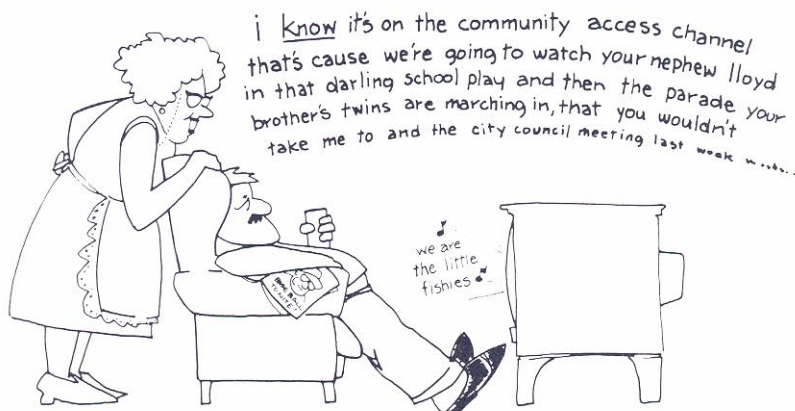 i know it's on the community access channel
that's cause we're going to watch your nephew lloyd
in that darling school play and then the parade your
brother's twins are marching in, that you wouldn't
take me to and the city council meeting last week
we are
the little
fishies
BASEBALL
TONITE!